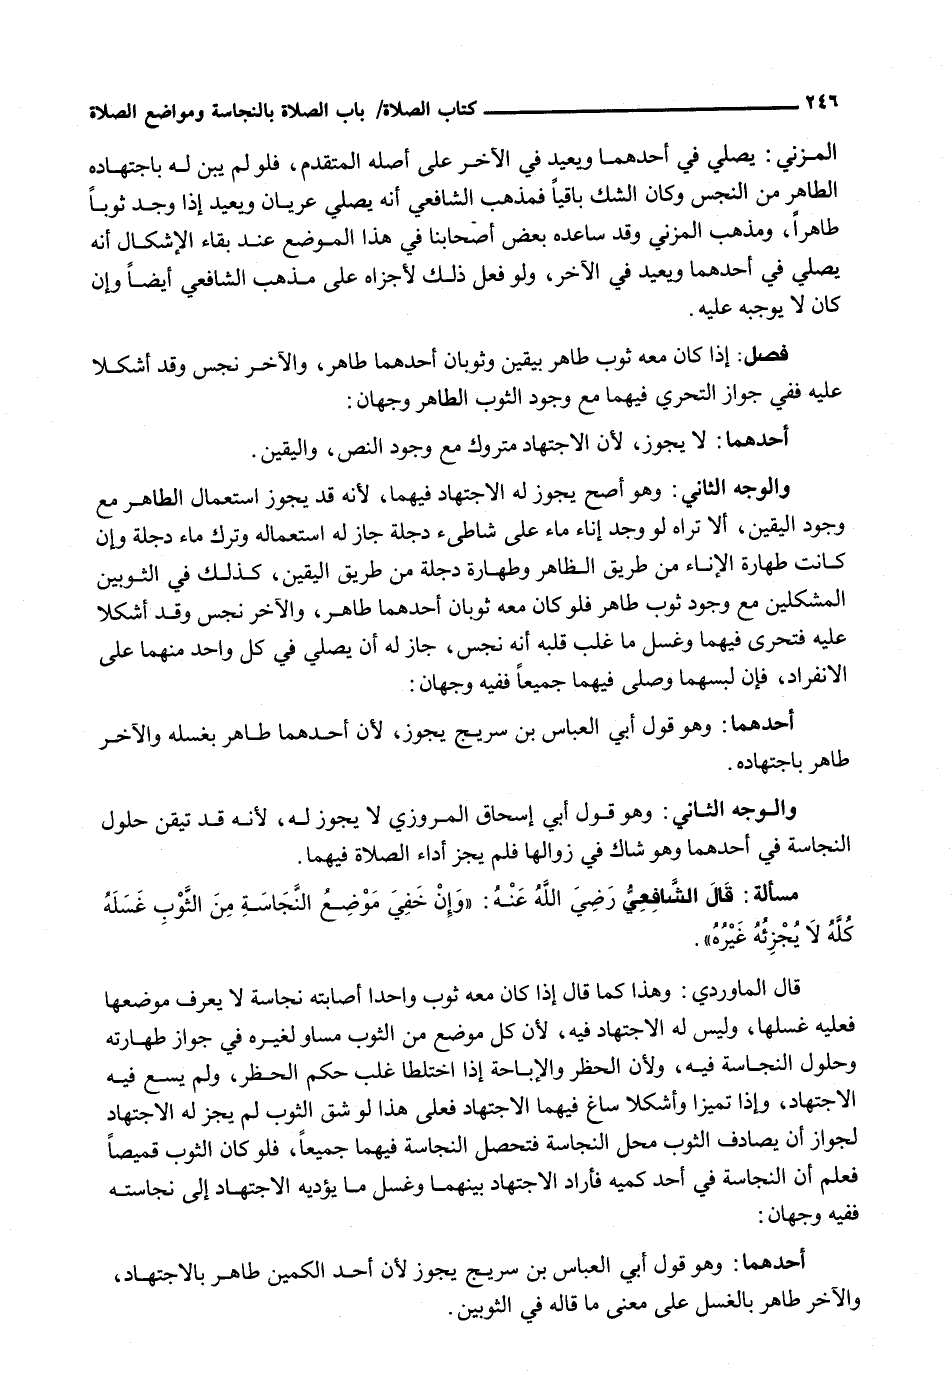 ٢٤٦ ــــــــــــــــــــــ كتاب الصلاة/ باب الصلاة بالنجاسة ومواضع الصلاة
المزني: يصلي في أحدهما ويعيد في الآخر على أصله المتقدم، فلو لم يبن له باجتهاده
الطاهر من النجس وكان الشك باقياً فمذهب الشافعي أنه يصلي عريان ويعيد إذا وجد ثوباً
طاهراً، ومذهب المزني وقد ساعده بعض أصحابنا في هذا الموضع عند بقاء الإشكال أنه
يصلي في أحدهما ويعيد في الآخر، ولو فعل ذلك لأجزاه على مذهب الشافعي أيضاً وإن
كان لا يوجبه عليه.
فصل: إذا كان معه ثوب طاهر بيقين وثوبان أحدهما طاهر، والآخر نجس وقد أشكلا
عليه ففي جواز التحري فيهما مع وجود الثوب الطاهر وجهان:
أحدهما: لا يجوز، لأن الاجتهاد متروك مع وجود النص، واليقين.
والوجه الثاني: وهو أصح يجوز له الاجتهاد فيهما، لأنه قد يجوز استعمال الطاهر مع
وجود اليقين، ألا تراه لو وجد إناء ماء على شاطىء دجلة جاز له استعماله وترك ماء دجلة وإن
كانت طهارة الإناء من طريق الظاهر وطهارة دجلة من طريق اليقين، كذلك في الثوبين
المشكلين مع وجود ثوب طاهر فلو كان معه ثوبان أحدهما طاهر، والآخر نجس وقد أشكلا
عليه فتحرى فيهما وغسل ما غلب قلبه أنه نجس، جاز له أن يصلي في كل واحد منهما على
الانفراد، فإن لبسهما وصلى فيهما جميعاً ففيه وجهان:
أحدهما: وهو قول أبي العباس بن سريج يجوز، لأن أحدهما طاهر بغسله والآخر
طاهر باجتهاده.
والوجه الثاني: وهو قول أبي إسحاق المروزي لا يجوز له، لأنه قد تيقن حلول
النجاسة في أحدهما وهو شاك في زوالها فلم يجز أداء الصلاة فيهما.
مسألة: قَالَ الشَّافِعِيُّ رَضِيَ اللَّهُ عَنْهُ: «وَإِنْ خَفِيَ مَوْضِعُ النَّجَاسَةِ مِنَ الثَّوْبِ غَسَلَهُ
كُلَّهُ لَا يُجْزِئُهُ غَيْرُهُ».
قال الماوردي: وهذا كما قال إذا كان معه ثوب واحدا أصابته نجاسة لا يعرف موضعها
فعليه غسلها، وليس له الاجتهاد فيه، لأن كل موضع من الثوب مساو لغيره في جواز طهارته
وحلول النجاسة فيه، ولأن الحظر والإباحة إذا اختلطا غلب حكم الحظر، ولم يسع فيه
الاجتهاد، وإذا تميزا وأشكلا ساغ فيهما الاجتهاد فعلى هذا لو شق الثوب لم يجز له الاجتهاد
لجواز أن يصادف الثوب محل النجاسة فتحصل النجاسة فيهما جميعاً، فلو كان الثوب قميصاً
فعلم أن النجاسة في أحد كميه فأراد الاجتهاد بينهما وغسل ما يؤديه الاجتهاد إلى نجاسته
ففيه وجهان:
أحدهما: وهو قول أبي العباس بن سريج يجوز لأن أحد الكمين طاهر بالاجتهاد،
والآخر طاهر بالغسل على معنى ما قاله في الثوبين.